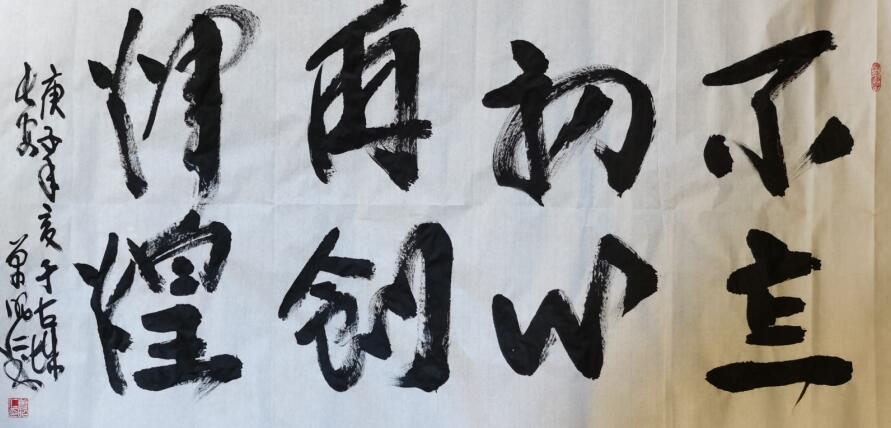 不忘
初心
再创
辉煌
庚子年夏于古城
长安